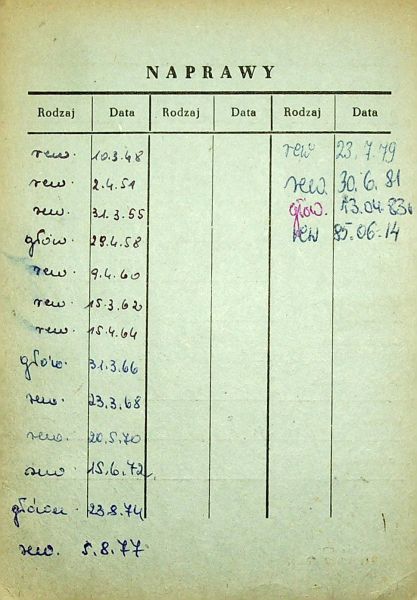 NAPRAWY
Rodzaj Data Rodzaj Data Rodzaj Data
rew. 10.3.48
rew. 2.4.51
rew. 31.3.55
głów. 29.4.58
rew. 9.4.60
rew. 15.3.62
rew. 15.4.64
głów. 31.3.66
rew. 23.3.68
rew. 20.5.70
rew. 15.6.72
główn. 23.8.74
rew. 5.8.77
rew 23.7.79
rew. 30.6.81
głów. 13.04.83
rew 85.06.14